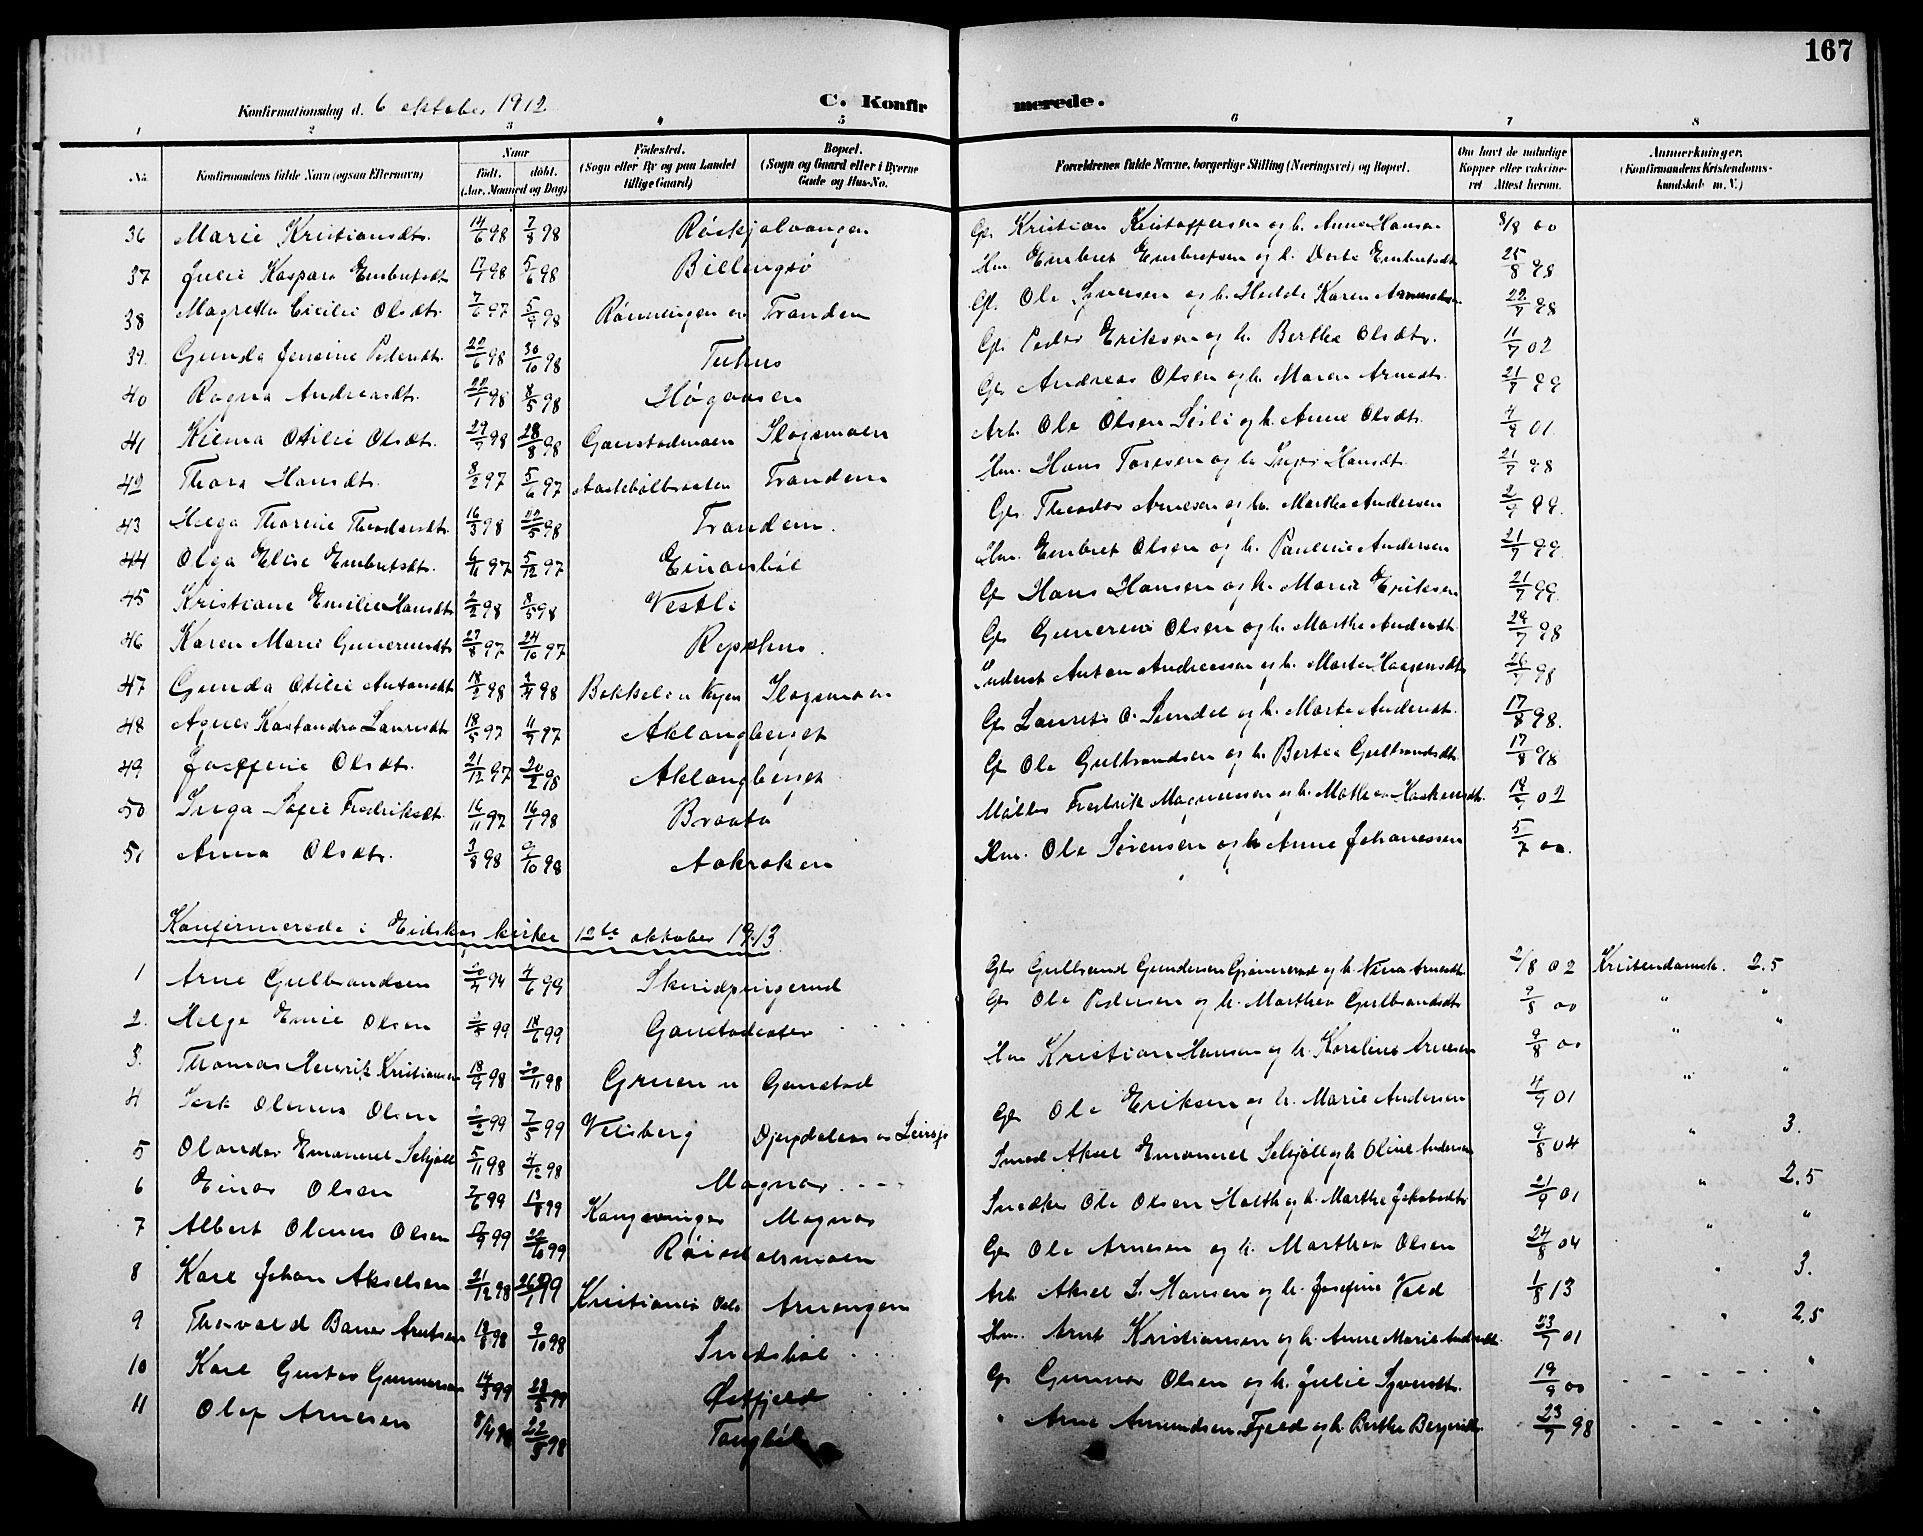 167
Konfirmationsdag d. 6 oktober 1912 C. Konfirmerede.
1 2 3 4 5 6 7 8
No. Konfirmandens fulde Navn (ogsaa Efternavn) Naar født. døbt. (Aar, Maaned og Dag) Fødested. (Sogn eller By og paa Landet tillige Gaard) Bopæl. (Sogn og Gaard eller i Byerne Gade og Hus-No. Forældrenes fulde Navne, borgerlige Stilling (Næringsvei) og Bopæl. Om havt de naturlige Kopper eller vaccineret Attest herom. Anmærkninger. (Konfirmandens Kristendomskundskab m. V.)
36 Marie Kristiansdt. 14/6 98 7/8 98 Gbr Kristian Kristoffersen og h. Anne Hansen 8/8 00
37 Julie Kaspara Embretsdt 17/1 98 5/6 98 Billingsø Hm. Embret Embretsen og h. Dorte Embretsdt 25/8 98
38 Magretha Cicilie Olsdt. 7/6 97 5/9 98 Trandem Gf. Ole Syversen og h. Hedda Karen 22/7 98
39. Gunda Jensine Pedersdt. 22/6 98 30/10 98 Tuhus Gbr Peder Eriksen og h. Berthe Olsdt. 11/7 02
40 Ragna Andreasdt. 22/1 98 8/5 98 Høgaasen Gbr Andreas Olsen og h. Maren Arnesdt. 21/7 99
41 Hilma Otilie Olsdt. 29/7 98 28/8 98 Gaustadmoen Skogsmoen Arb. Ole Olsen Sisli og h. Anne Olsdt. 4/9 01
42 Thora Hansdt. 8/2 97 5/6 97 Trandem Hm. Hans Toresen og h. Inger Hansdt. 21/7 98
43 Helga Thorine Theodorsdt. 16/3 98 22/5 98 Trandem. Gbr. Theodor Arnesen og h. Marthe Andersen 2/9 99.
44 Olga Elise Embretsdt. 6/11 97 5/12 97 Einarsbøl Hm. Embret Olsen og h. Pauline Andersen 21/7 99.
45 Kristiane Emilie Hansdt 2/2 98 8/5 98 Vestli Gbr Hans Hansen og h. Marie Eriksen 21/7 99.
46 Karen Marie Gunerusdt 27/8 97 24/10 97 Rypehus. Gbr Gunerius Olsen og h. Marthe Andersdt. 29/7 98
47 Gunda Otilie Antonsdt 18/2 98 98 Skogsmoen Inderst Anton Andreassen og h. Marte Haagensdt 98
48 Agnes Kastandra Lauritsdt 18/5 97 11/7 97 Aklangberget Gbr Laurits O. Sundee og h. Marte Andersdt. 17/8 98.
49 Josefine Olsdt. 21/12 97 20/2 98 Aklangberget Gbr Ole Gulbrandsen og h. Bertea Gulbrandsdt 17/8 98
50 Inga Sofie Fredriksdt. 16/11 97 16/1 98 Braata Møller Fredrik Magnussen og h. Mathea Haakensdt. 18/9 02
51 Anna Olsdt. 3/8 98 9/10 98 Aakroken Hm. Ole Sørensen og h Anne Johanessen 5/7 00.
Konfirmerede i Eidskog kirke 12te oktober 1913
1 Arne Gulbrandsen 4/6 99 Skridpingerud Gbr Gulbrand Gundersen Grønnerud og h. Nina Arnesdt. 2/8 02 Kristendomsk. 2.5
2. Helge Emil Olsen 99 18/6 99 Ganstadsæter Gbr Ole Pedersen og h. Marthea Gulbrandsdt 9/8 00 " "
3. Thomas Henrik Kristiansen 18/9 98 20/11 98 Gruen u Ganstad Hm Kristian Hansen og h. Karoline Arnesen 9/8 00 " "
4 Olenus Olsen 2/2 99 7/5 99 Velsberg Gbr Ole Eriksen og h. Marie Andersen 4/7 01 " "
5 Olander Emanuel Seljøll 5/11 98 4/12 98 Magnor Smed Aksel Emanuel Seljøll og h Oline Andersen 9/8 04 " 3.
6 Einar Olsen 7/6 99 13/8 99 Kongsvinger Magnor Snedker Ole Olsen Holth og h. Marthe Jakobsdt. 21/9 01 " 2.5
7 Albert Olenus Olsen 17/9 99 22/10 99 Røisdalsmoen Gbr Ole Arnesen og h. Marthea Olsen 24/8 04 " "
8 Karl Johan Akselsen 21/12 98 99 Kristiania Arnengen Arb. Aksel L. Hansen og h. Josefine Vold 1/8 13 " 3.
9 Thorvald Arntsen 18/8 98 9/10 98 Sundsbøl Hm. Arnt Kristiansen og h. Anne Marie 23/7 01 " 2.5
10 Karl Gustav Gunnarsen 14/3 99 28/5 99 Østfjeld Gbr Gunnar Olsen og h. Julie Syversdt. 19/9 00 "
11 Olaf Arnesen 8/4 98 22/5 98 Tangbøl " Arne Amundsen Fjeld og h. Berthe 23/7 98 "